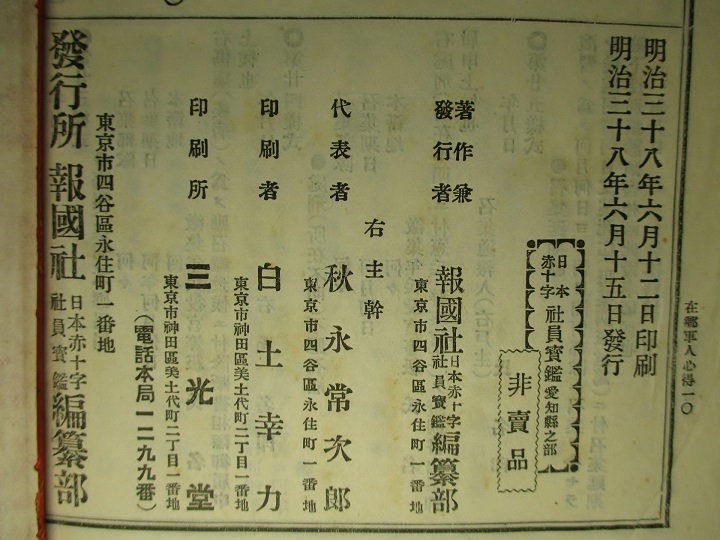 在鄕軍人心得一〇
明治三十八年六月十二日印刷
明治三十八年六月十五日發行
日本赤十字
社員寶鑑愛知縣之部
非賣品
著作兼發行者
報國社日本赤十字社員寶鑑編纂部
東京市四谷區永住町一番地
右主幹
代表者
秋永常次郎
東京市四谷區永住町一番地
印刷者
白土幸力
東京市神田區美土代町二丁目一番地
印刷所
三光堂
東京市神田區美土代町二丁目一番地
(電話本局一二九九番)
東京市四谷區永住町一番地
發行所 報國社日本赤十字社員寶鑑編纂部